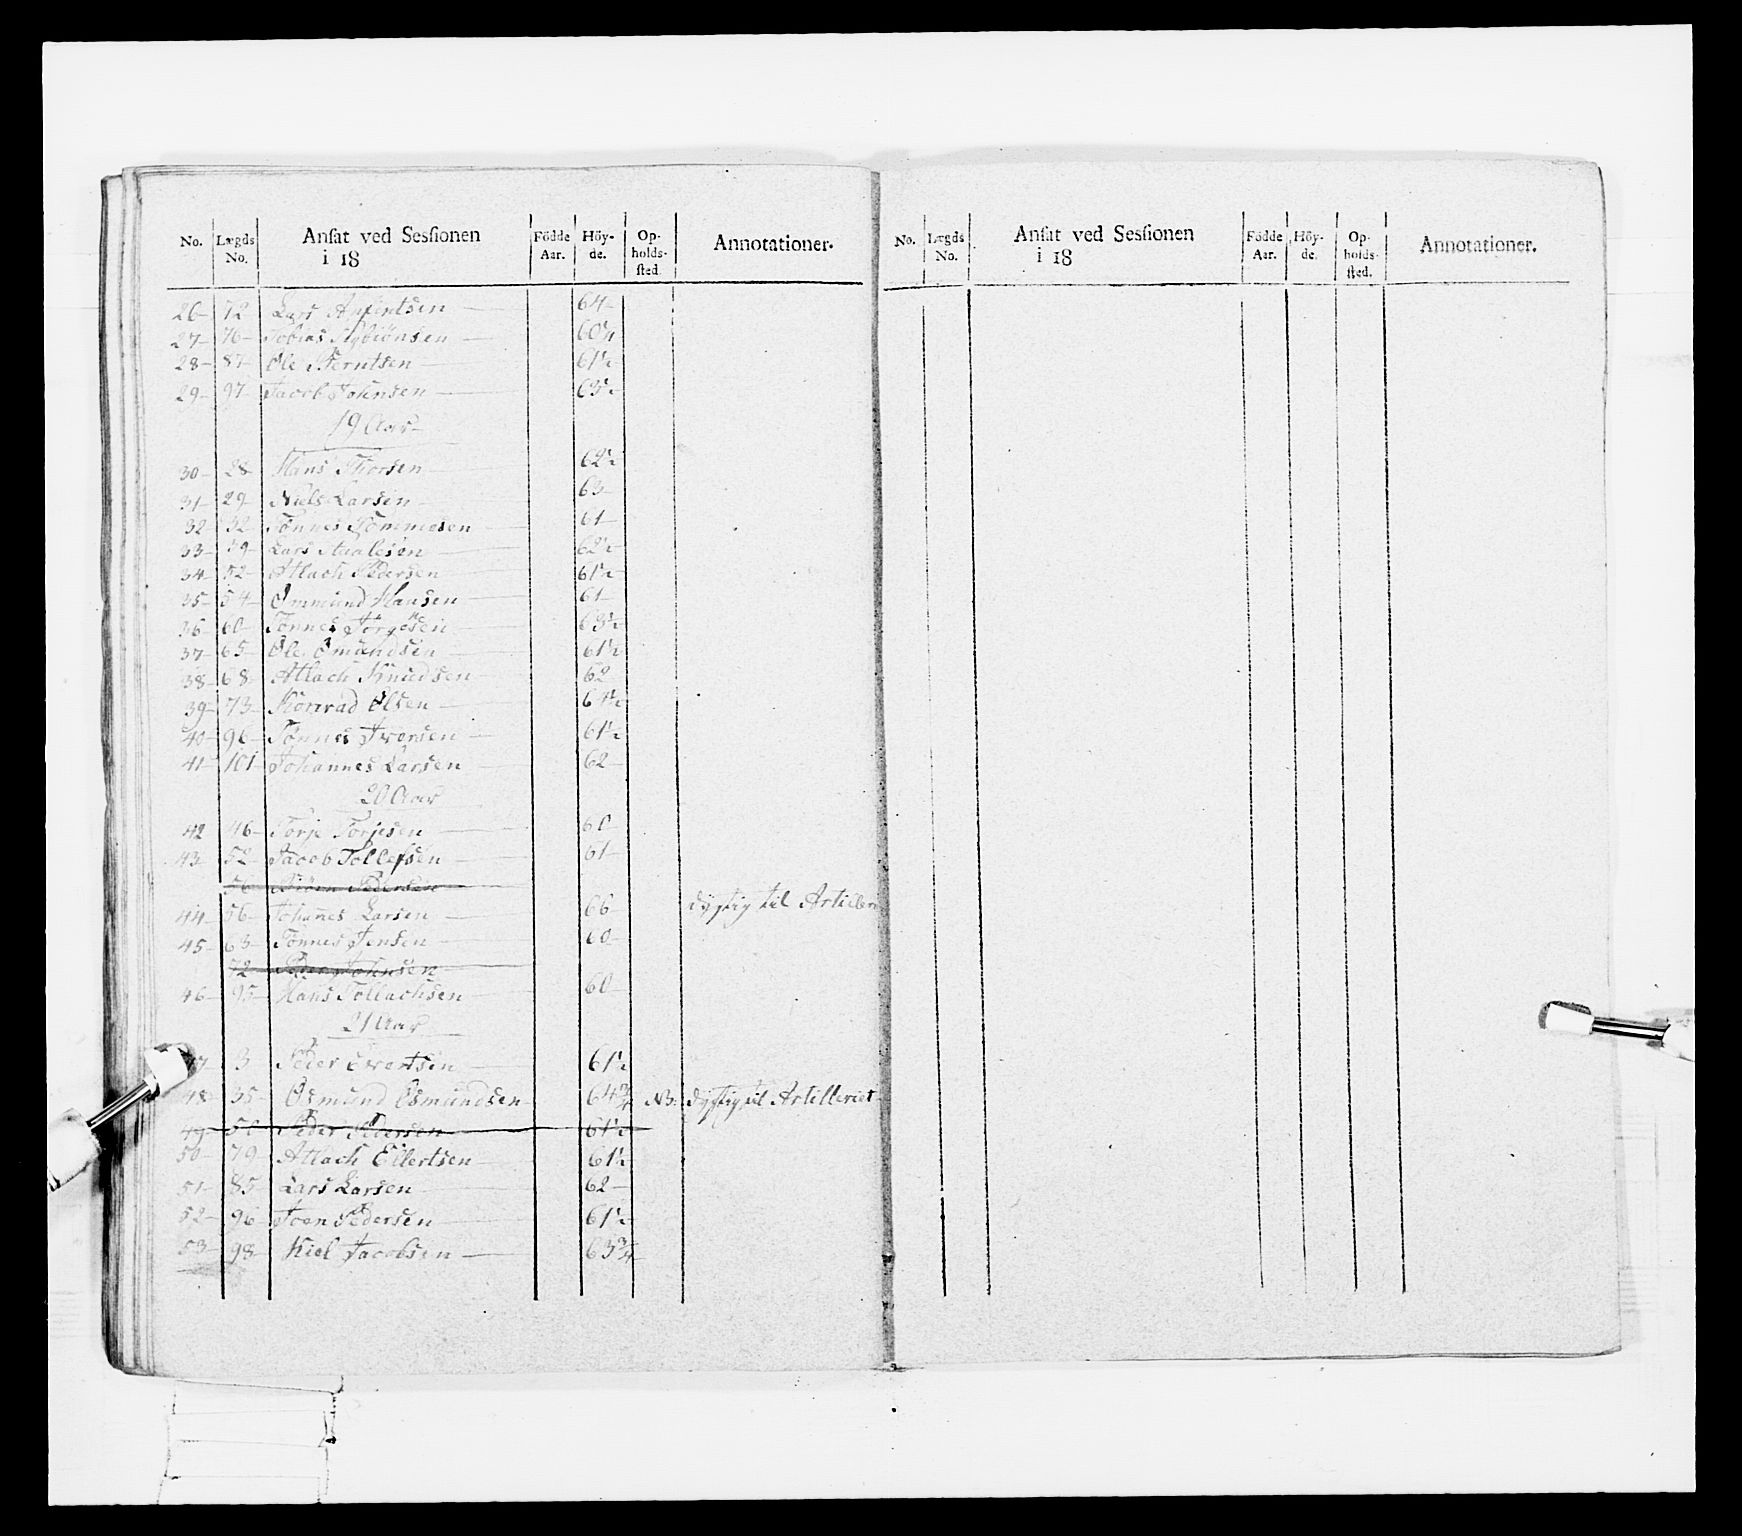 No. Lægds No. Ansat ved Sessionen i 18 Födde Aar. Höyde. Opholdssted. Annotationer.
26 72 Lars Anfintsen 64
27 76 Tobias Asbiönsen 60½
28 87 Ole Berntsen 61½
29 97 Jacob Johnsen 63½
19 Aar
30 28 Hans Thorsen 62½
31 29 Niels Larsen 63
32 32 Tönnes Tommesen 61
33 39 Lars Aaalesen 62½
34 52 Atlach Pedersen 61½
35 54 Ommund Hansen 61
36 60 Tönnes Jörgesen 63½
37 65 Ole Omundsen 61½
38 68 Atlach Knudsen 62
39 73 Konrad Olsen 64½
40 96 Tönnes Iversen 61½
41 101 Johannes Larsen 62
20 Aar
42 46 Torje Torjesen 60
43 52 Jacob Tollefsen 61
56 Biörn Pedersen
44 56 Johanes Larsen 66 dygtig til Artilleri
45 63 Tönnes Jensen 60
72 Peder Johnsen
46 95 Hans Tollachsen 60
21 Aar
47 3 Peder Evertsen 61½
48 35 Osmund Osmundsen 64¾ NB: dygtig til Artilleriet
49 50 Peder Pedersen 61½
50 79 Atlach Eilertsen 61½
51 85 Lars Larsen 62
52 96 Joen Pedersen 61½
53 98 Kiel Jacobsen 63¾
No. Lægds No. Ansat ved Sessionen i 18 Födde Aar. Höyde. Opholdssted. Annotationer.